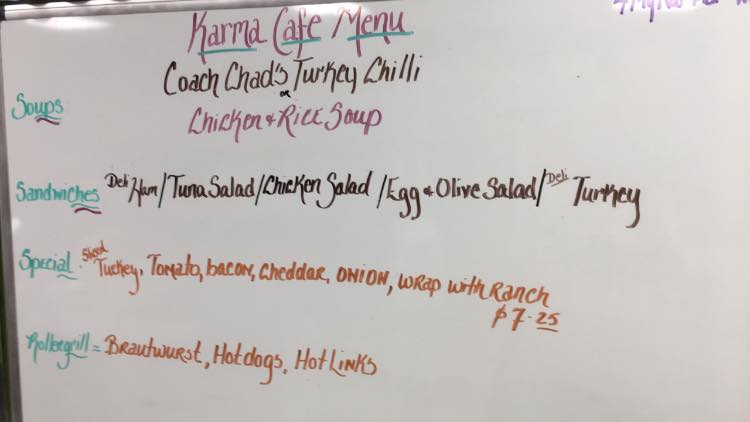 Karma Cafe Menu
Coach Chad's Turkey Chilli
or
Soups
Chicken & Rice Soup
Sandwiches Deli Ham/Tuna Salad/Chicken Salad/Egg & Olive Salad/Deli Turkey
Special. Sliced Turkey, Tomato, bacon, Cheddar, ONION, wrap with Ranch
$7.25
Rollergrill = Brautwurst, Hotdogs, Hot Links